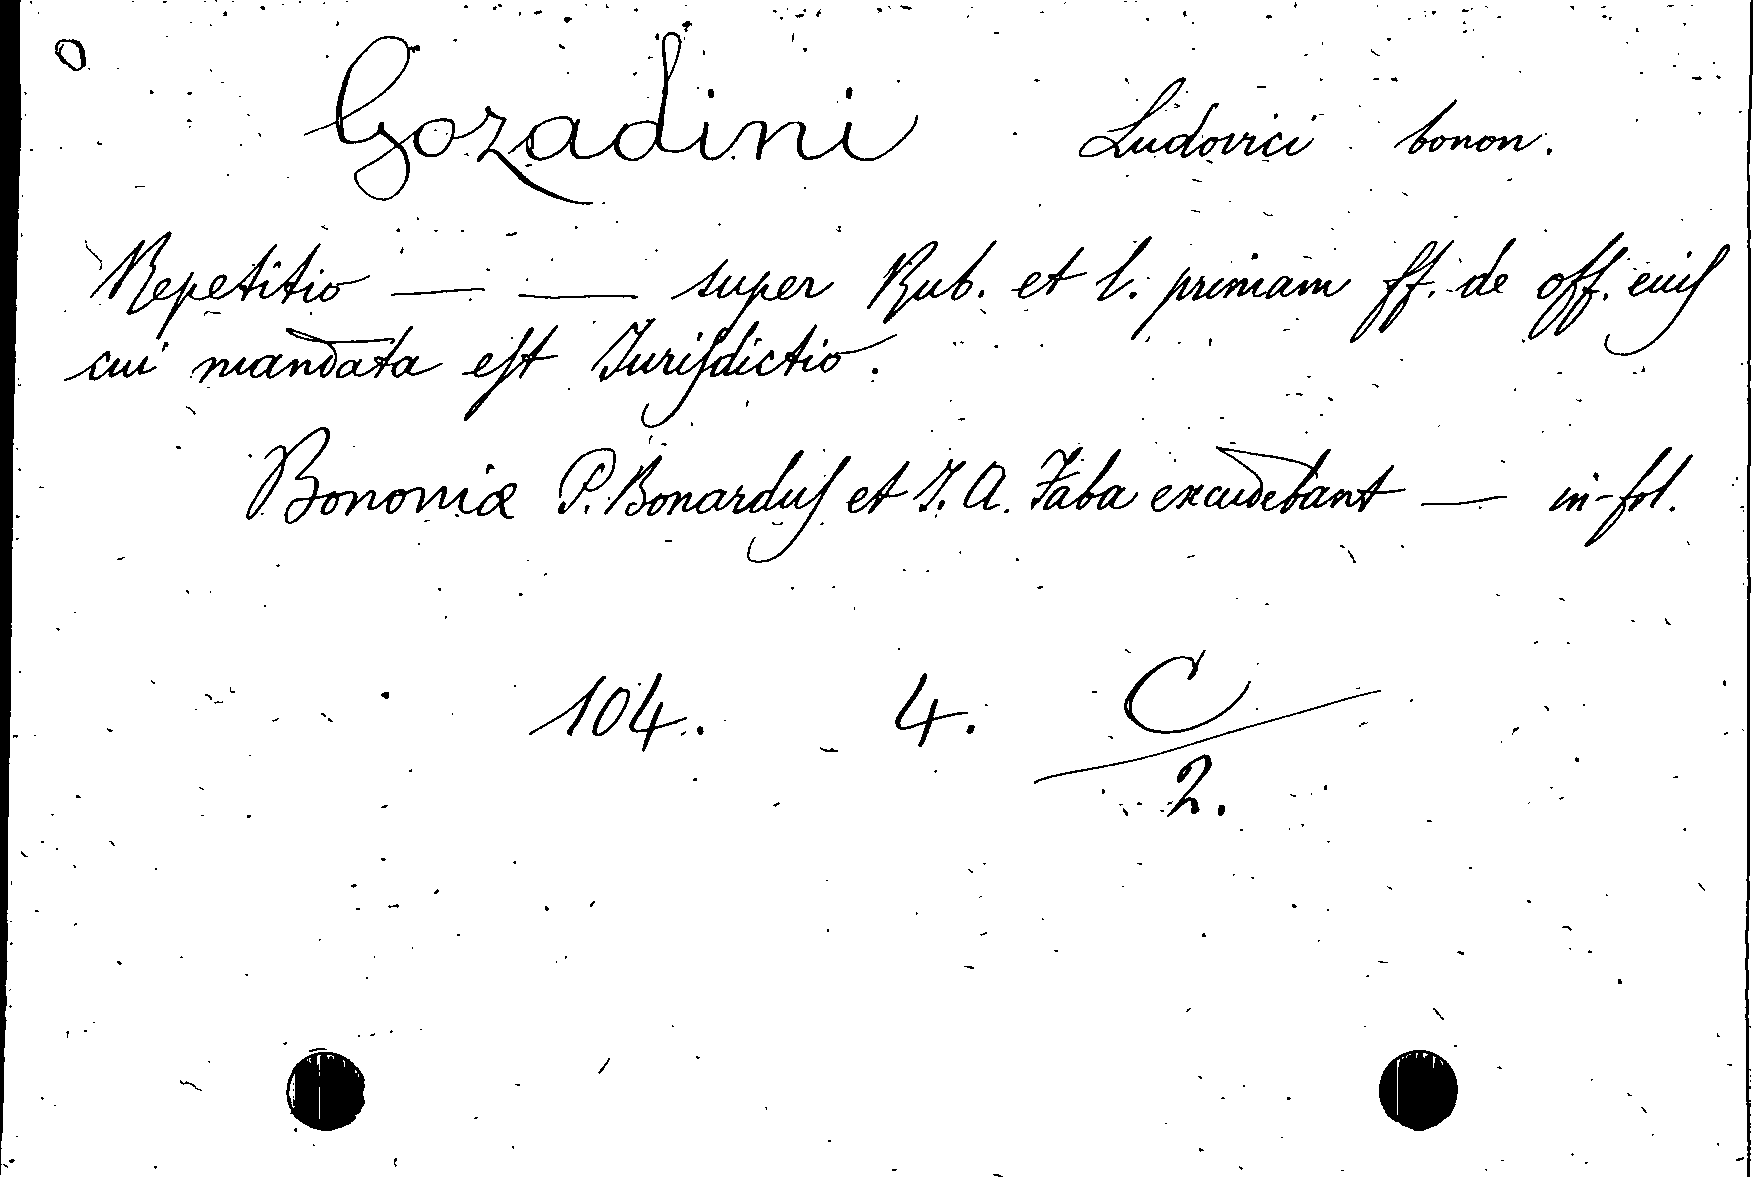 O
Gozadini Ludovici bonon.
Repetitio — — super Rub. et l. primam ff. de off. eiuſ
cui mandata eſt Juriſdictio.
Bononiæ P. Bonarduſ et J. A. Faba excudebant — in-fol.
104. 4. C/2.